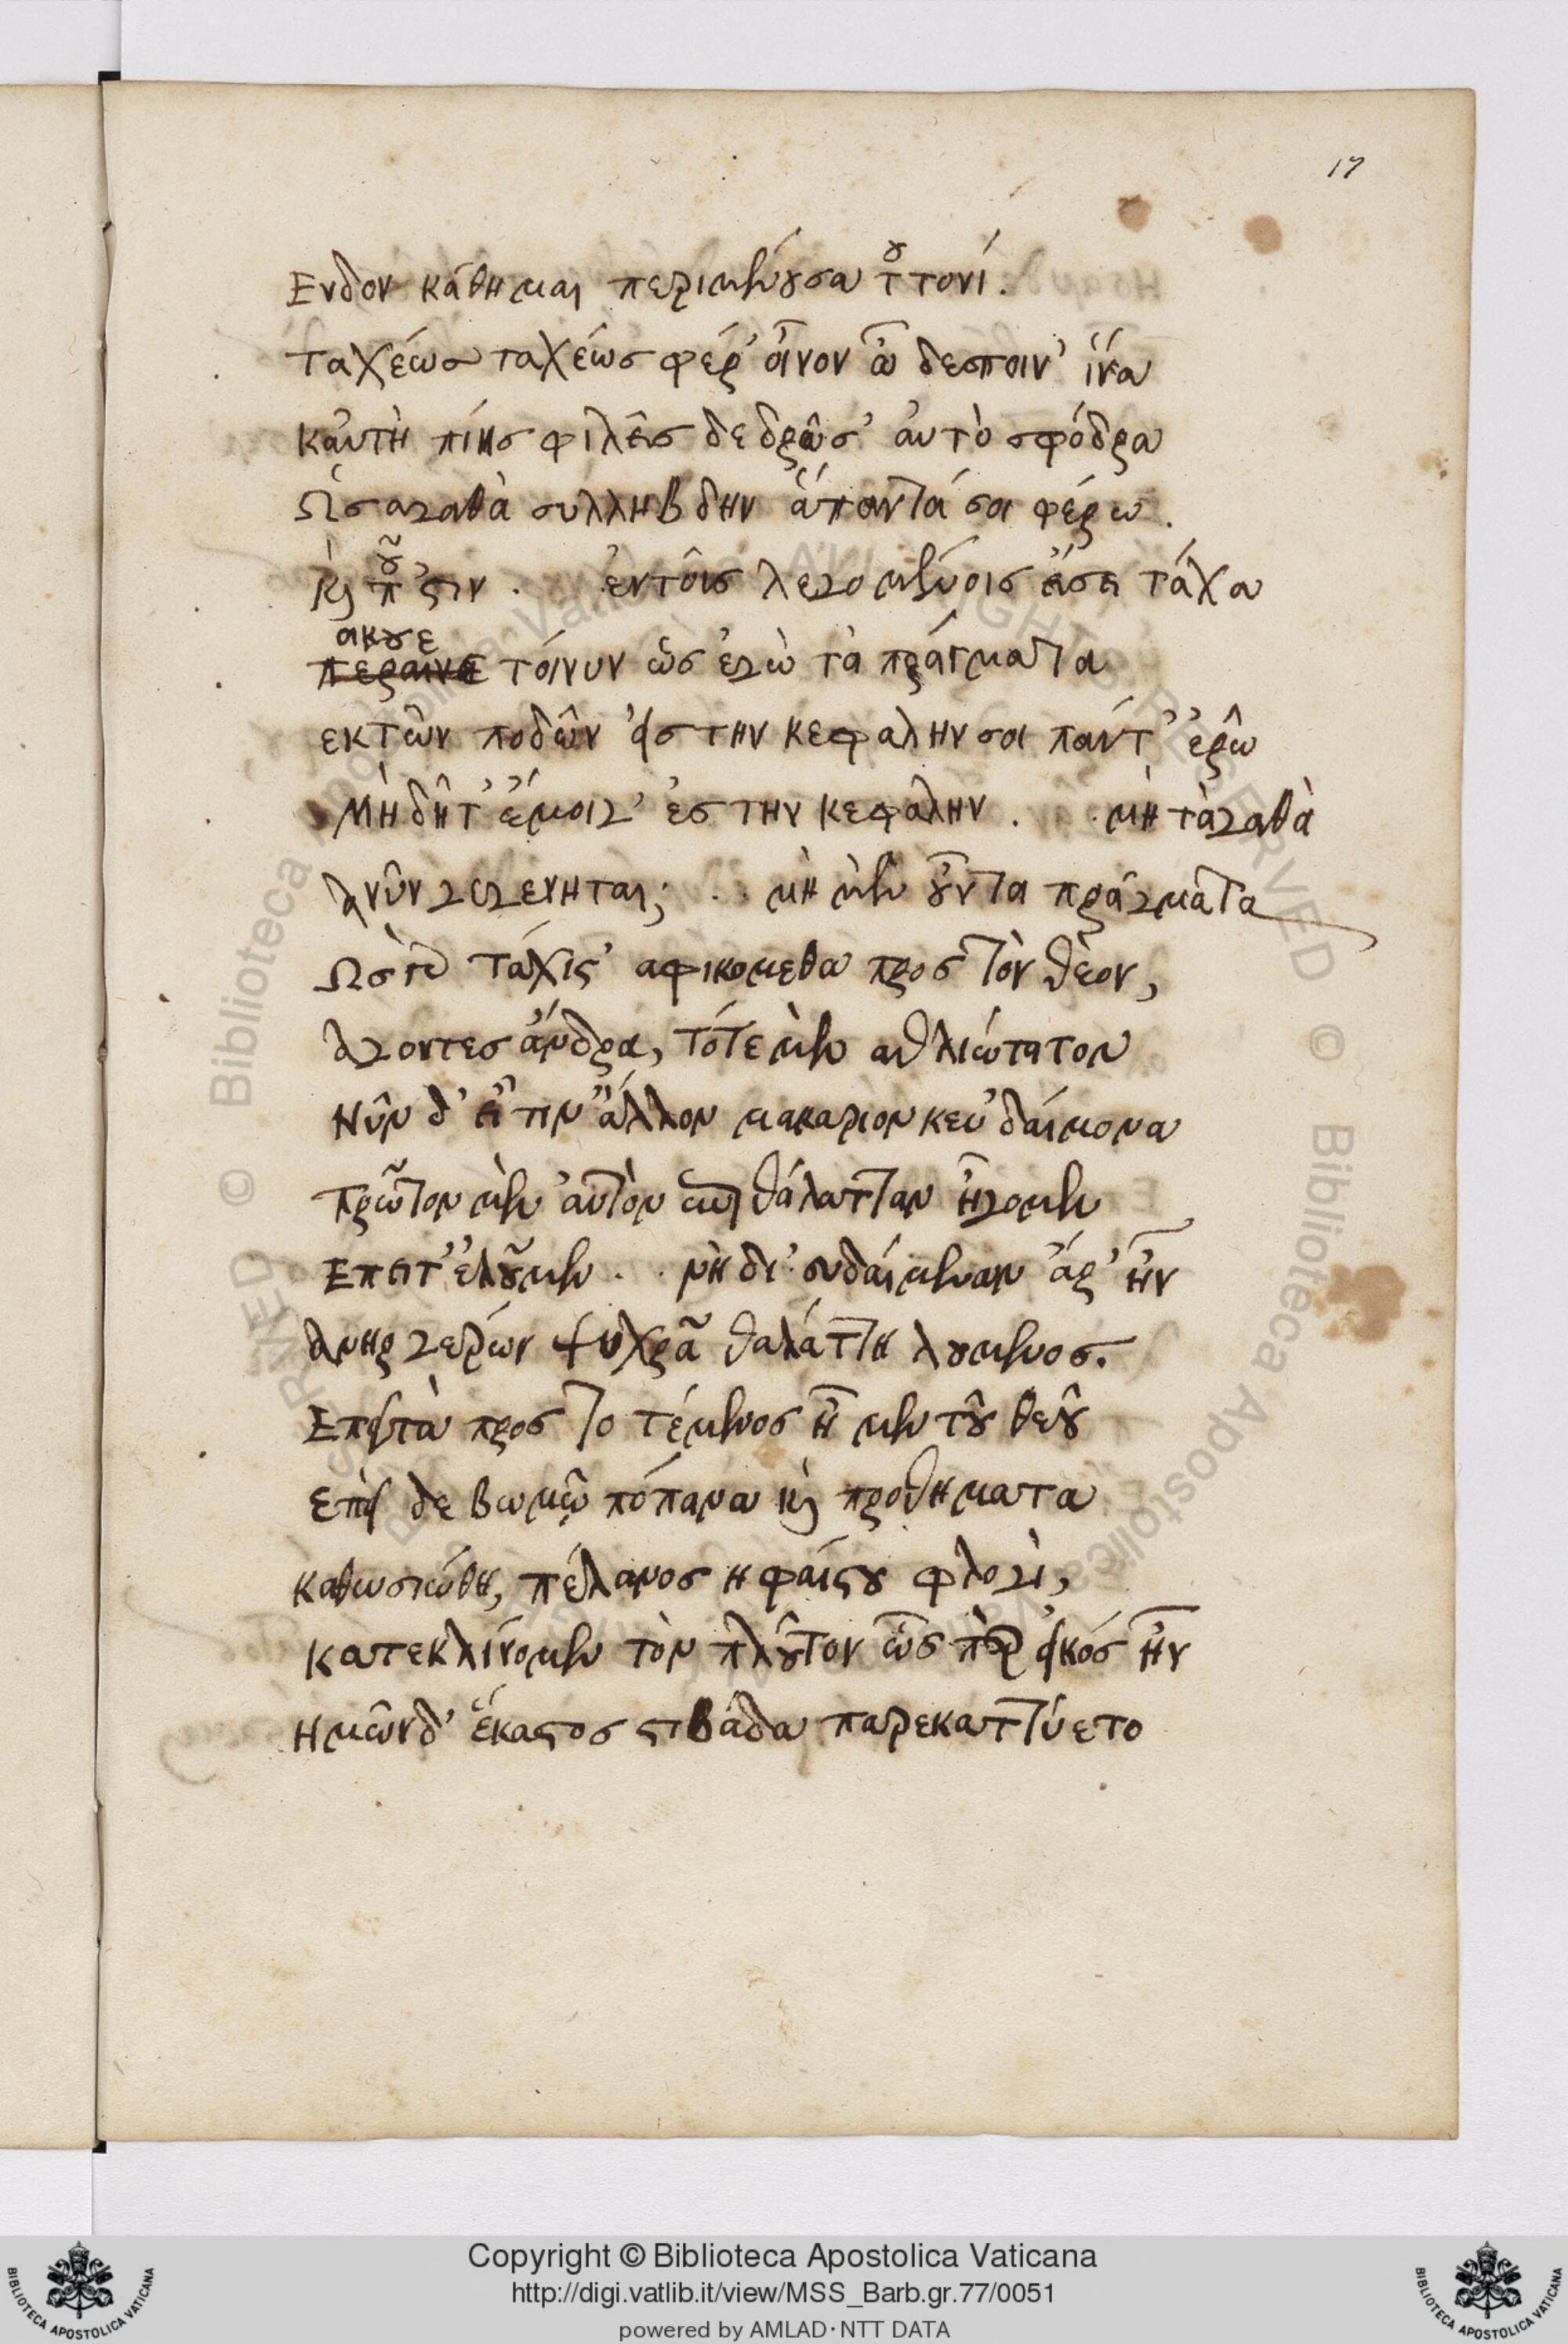 17
Ενδον κάθημαι περιμένουσα τουτονί.
ταχέως ταχέως φέρ' οἶνον ὦ δεσποιν' ἵνα
καὐτὴ πίης φιλεῖς δε δρῶσ' ἀυτὸ σφόδρα
Ως αγαθὰ συλληβδην ἅπαντά σοι φέρω.
κὶ ποῦ ςιν . ἐντοῖς λεγομένοις εἴση τάχα
ακουε
περαινε τοίνυν ὡς ἐγὼ τὰ πράγματα
εκτῶν ποδῶν εἰς την κεφαλην σοι πάντ' ἐρῶ
Μὴ δῆτ' ἔμοιγ' ἐς την κεφάλην . μὴ τἀγαθὰ
ἁ νῦν γεγενηται; . . μὴ μὲν οῦν τα πράγματα
Ως γὰρ τάχιςτ' αφικομεθα προς τὸν θέον,
Αγοντες ἄνδρα, τότε μὲν αθλιώτατον
Νῦν δ' εἴ τιν ἄλλον μακαριον κευ'δαίμονα
Πρῶτον μὲν ἀυτὸν ἐπὶ θάλατταν ἤγομεν
Επειτ' ἐλοῦμεν . . νὴ δι' συδαίμεναν ἄρ' ἦν
Ανηρ γερών ψυχρᾶ θαλάττη λουμενος.
Επειτὰ προς το τέμενος ἦ μεν τοῦ θεοῦ
επεὶ δε βωμῶ πόπανα κὶ προθηματα
καθωσιώθη, πέλανος ηφαίςου φλογὶ,
κατεκλίνομεν τὸν πλοῦτον ὥσπερ εἰκός ἦν
Ημῶνδ' ἕκαςος ςιβάδα παρεκαττύετο
Copyright © Biblioteca Apostolica Vaticana
http://digi.vatlib.it/view/MSS_Barb.gr.77/0051
powered by AMLAD·NTT DATA